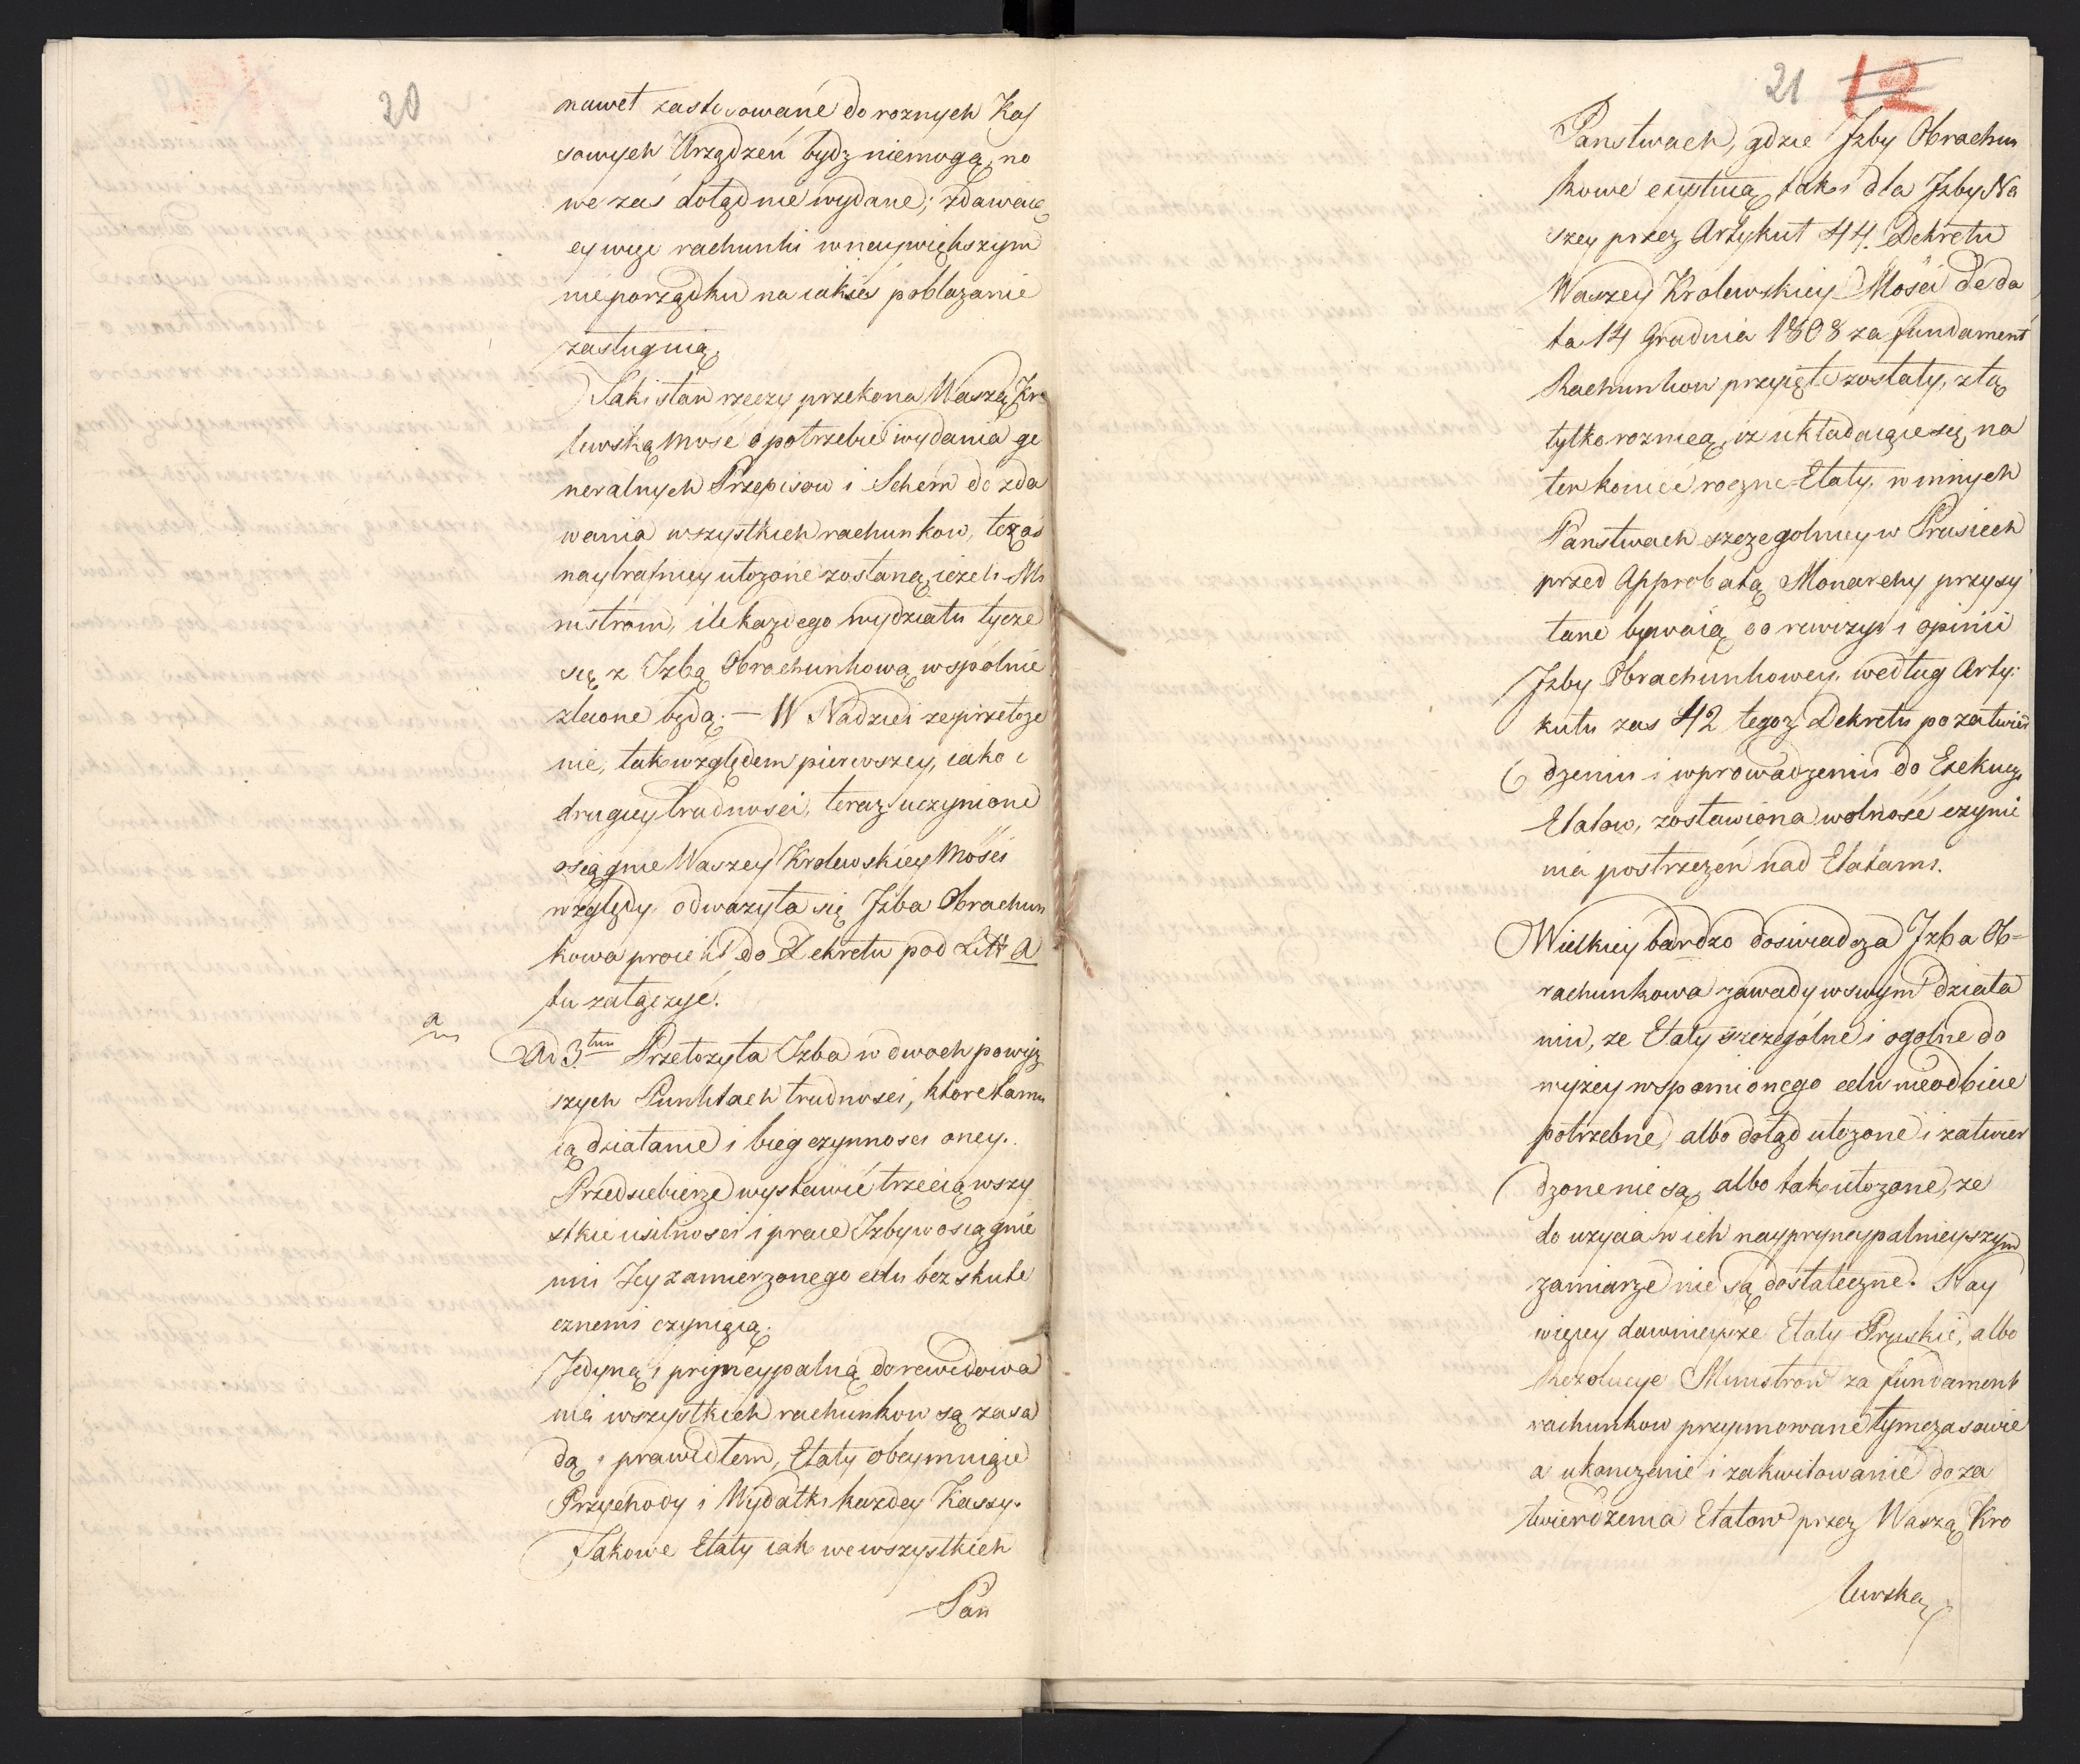 20
nawet zastosowane do roznych Kas
sowych Urządzeń bydz niemogą, no
we zaś dotąd nie wydane; zdawaią
cy więc rachunki w naywiększym
nieporządku na iakieś pobłazanie
zasługuią.
Taki stan rzeczy przekona Waszą Kro
lewską Mość o potrzebie wydania ge
neralnych Przepisow i Schem do zda
wania wszystkich rachunkow, te zaś
naytrafniey ułozone zostaną, iezeli Mi
nistrom, ile kazdego wydziału tycze
się z Izbą Obrachunkową wspólnie
zlecone będą. — W Nadziei ze przełoże
nie, tak względem pierwszey, iako i
drugiey trudności, teraz uczynione
osiągnie Waszey Krolewskiey Mości
względy odwazyła się Izba Obrachun
kowa proiekt do Dekretu pod Litt A
tu załączyć.
a
Ad 3.tum Przełozyła Izba w dwoch powyż
szych Punktach trudności, ktore tamu
ią działanie i bieg czynnosci oney.
Przedsiebierze wystawić trzecią wszy
stkie usilności i prace Izby w osiągnie
niu Jey zamierzonego celu bezskute
cznemi czyniącą.
Jedyną i pryncypalną do rewidowa
nia wszystkich rachunkow są zasa
dą i prawidłem, Etaty obeymuiące
Przychody i Wydatki kazdey Kassy.
Jakowe Etaty iak we wszystkich
Pań
21 12
Panstwach, gdzie Izby Obrachun
kowe exystuią, tak i dla Izby Na
szey przez Artykuł 44. Dekretu
Waszey Krolewskiey Mości de da
ta 14 Grudnia 1808 za fundament
Rachunkow przyięte zostały, z tą
tylko roznicą, iz układaiące się na
ten koniec roczne Etaty, w innych
Panstwach szczegolniey w Prusiech
przed Approbatą Monarchy przysy
łane bywaią do rewizyi i opinii
Izby Obrachunkowey, według Arty-
kułu zas 42 tegoz Dekretu po zatwier
dzeniu i wprowadzeniu do Exekucyi
Etatow, zostawiona wolność czynie
nia postrzezeń nad Etatami.
Wielkiey bardzo doswiadcza Izba Ob=
rachunkowa zawady w swym działa
niu, ze Etaty szczególne i ogolne do
wyżey wspomionego celu nieodbicie
potrzebne, albo dotąd ułozone i zatwier
dzone nie są, albo tak ułozone, ze
do uzycia w ich naypryncypalnieyszym
zamiarze nie są dostateczne. Nay
więcey dawnieysze Etaty Pruskie, albo
Rezolucye Ministrow za fundament
rachunkow przyimowane tymczasowie
a ukonczenie i zakwitowanie do za
twierdzenia Etatow przez Waszą Kro
lewską